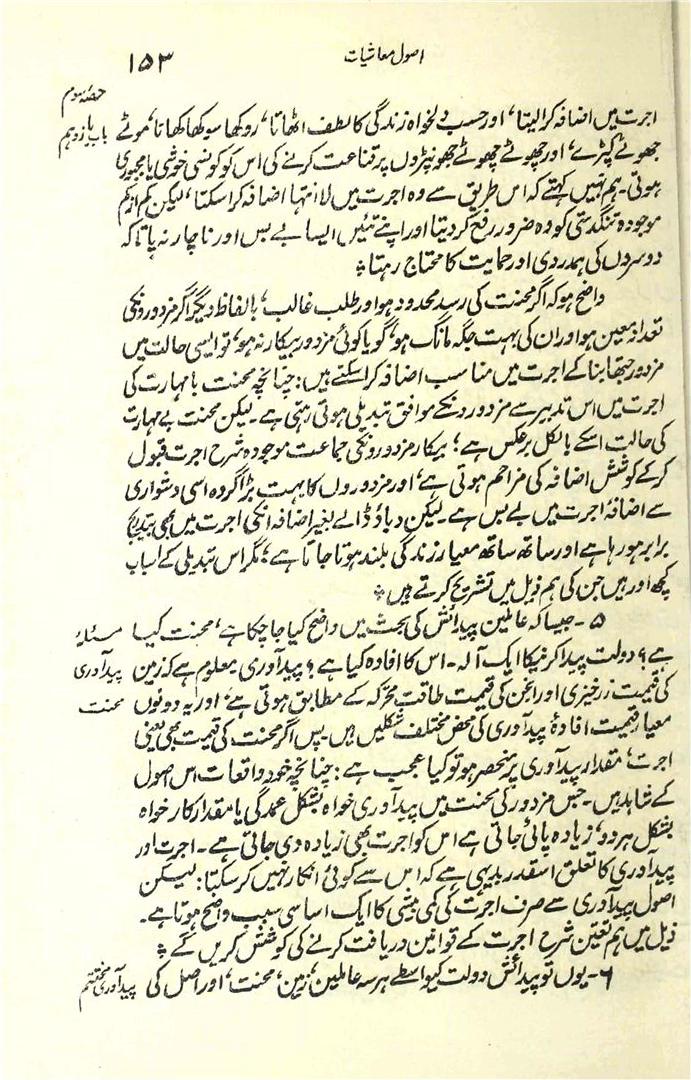 اصول معاشیات
۱۵۳
حصۂ سوم
باب یازدہم
اجرت میں اضافہ کرالیتا، اور حسب دلخواہ زندگی کا لطف اٹھاتا، روکھا سوکھا کھاتا، موٹے
جھوٹے کپڑے، اور چھوٹے چھوٹے جھونپڑوں پر قناعت کرنے کی اس کو کونسی خوشی یا مجبوری
ہوتی۔ ہم نہیں کہتے کہ اس طریق سے وہ اجرت میں لا انتہا اضافہ کرا سکتا، لیکن کم از کم
موجودہ تنگدستی کو وہ ضرور رفع کر دیتا اور اپنے تئیں ایسا بے بس اور ناچار نہ پاتا کہ
دوسروں کی ہمدردی اور حمایت کا محتاج رہتا؞
واضح ہو کہ اگر محنت کی رسد محدود ہو اور طلب غالب، بالفاظ دیگر اگر مزدورونکی
تعداد معین ہو اور ان کی بہت جگہ مانگ ہو، گویا کوئی مزدور بیکار نہ ہو، تو ایسی حالت میں
مزدور جتھا بنا کے اجرت میں مناسب اضافہ کرا سکتے ہیں: چنانچہ محنت بامہارت کی
اجرت میں اس تدبیر سے مزدورونکے موافق تبدیلی ہوتی رہتی ہے۔ لیکن محنت بے مہارت
کی حالت اسکے بالکل برعکس ہے؛ بیکار مزدورونکی جماعت موجودہ شرح اجرت قبول
کر کے کوشش اضافہ کی مزاحم ہوتی ہے، اور مزدوروں کا بہت بڑا گروہ اسی دشواری
سے اضافۂ اجرت میں بے بس ہے۔ لیکن دباؤ ڈالے بغیر اضافہ انکی اجرت میں بھی بتدریج
برابر ہو رہا ہے اور ساتھ ساتھ معیار زندگی بلند ہوتا جاتا ہے؛ مگر اس تبدیلی کے اسباب
کچھ اور ہیں جن کی ہم ذیل میں تشریح کرتے ہیں؞
۵۔ جیسا کہ عاملین پیدائش کی بحث میں واضح کیا جا چکا ہے، محنت کیا
مسئلۂ
ہے؟ دولت پیدا کرنیکا ایک آلہ۔ اس کا افادہ کیا ہے؟ پیدآوری معلوم ہے کہ زمین
پیدآوری
کی قیمت زرخیزی اور انجن کی قیمت طاقت محرکہ کے مطابق ہوتی ہے، اور یہ دونوں
محنت
معیار قیمت افادۂ پیدآوری کی محض مختلف شکلیں ہیں۔ پس اگر محنت کی قیمت بھی یعنی
اجرت، مقدار پیدآوری پر منحصر ہو تو کیا عجیب ہے: چنانچہ خود واقعات اس اصول
کے شاہد ہیں۔ جس مزدور کی محنت میں پیدآوری خواہ بشکل عمدگی یا مقدار کار خواہ
بشکل ہر دو، زیادہ پائی جاتی ہے اس کو اجرت بھی زیادہ دی جاتی ہے۔ اجرت اور
پیدآوری کا تعلق اسقدر بدیہی ہے کہ اس سے کوئی انکار نہیں کر سکتا: لیکن
اصول پیدآوری سے صرف اجرت کی کمی بیشی کا ایک اساسی سبب واضح ہوتا ہے۔
ذیل میں ہم تعین شرح اجرت کے قوانین دریافت کرنے کی کوشش کریں گے؞
۶۔ یوں تو پیدائش دولت کیواسطے ہر سہ عاملین، زمین، محنت، اور اصل کی
پیدآوری مختتم